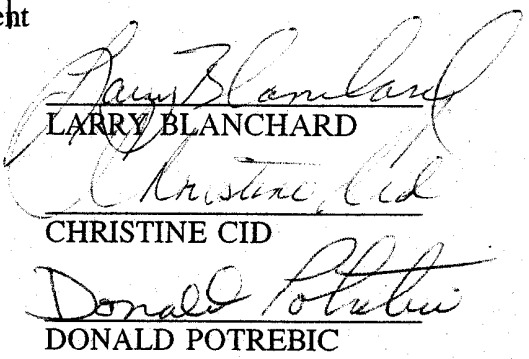 Larry Blanchard
LARRY BLANCHARD
Christine Cid
CHRISTINE CID
Donald Potrebic
DONALD POTREBIC